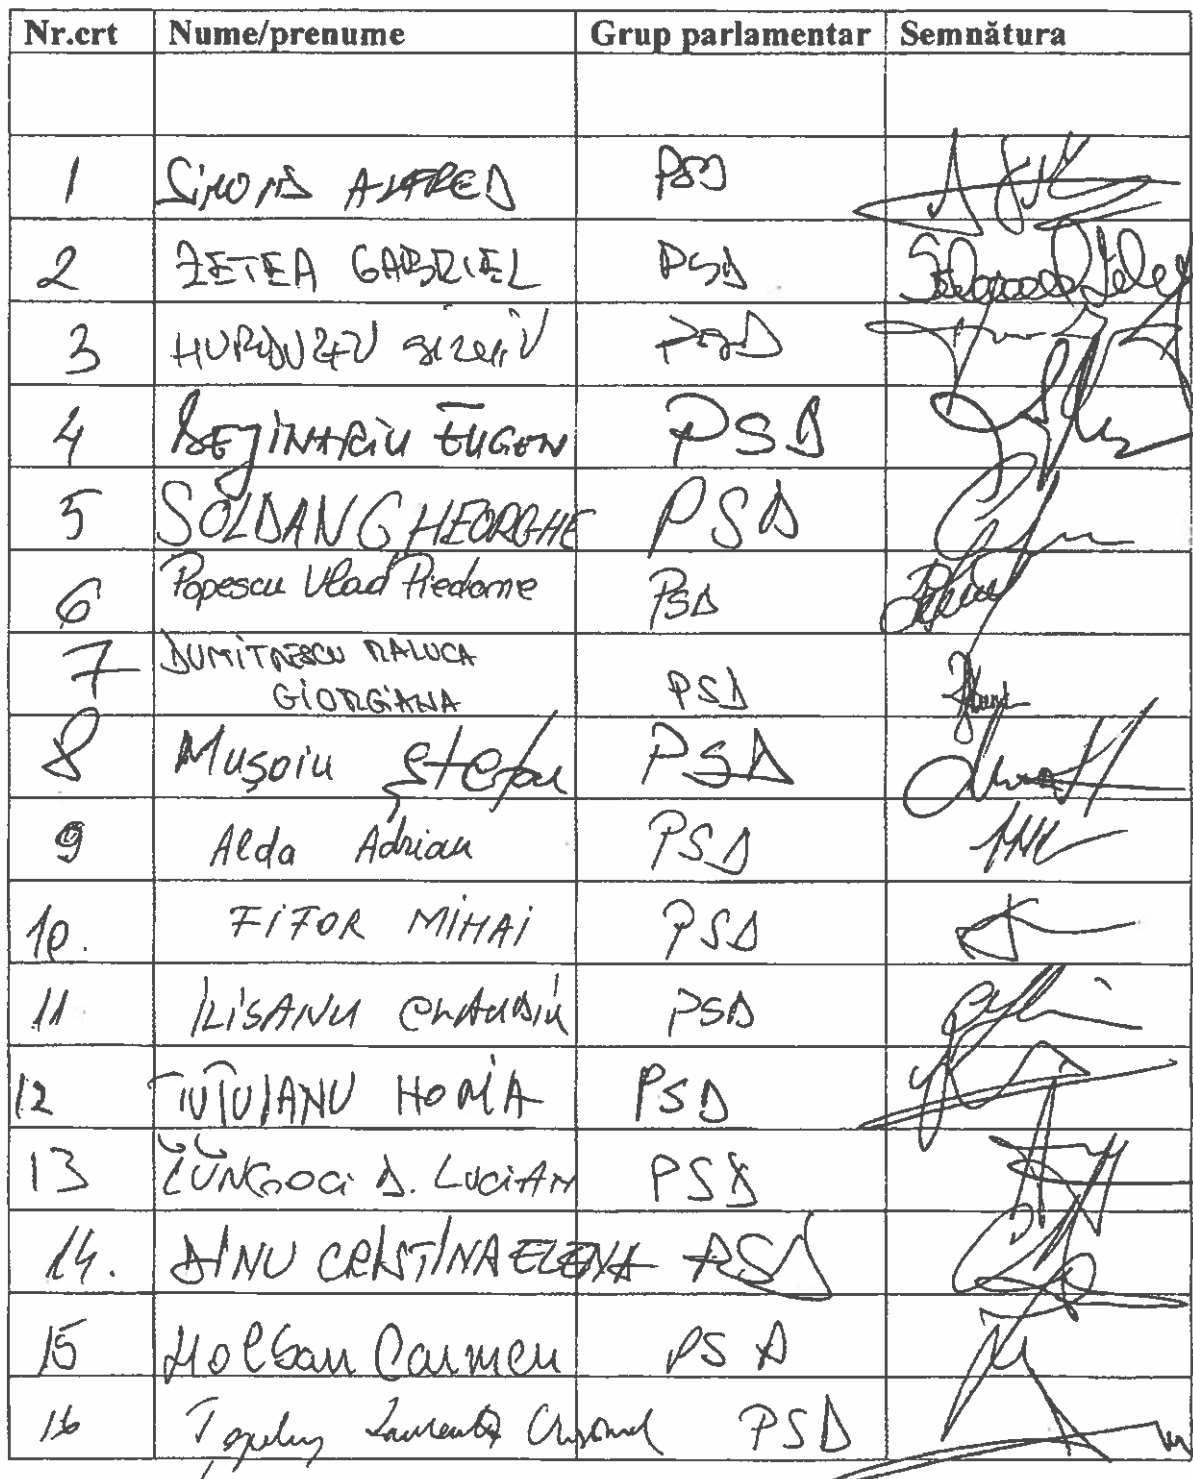 Nr.crt Nume/prenume Grup parlamentar Semnătura
1 SIMONIS ALFRED PSD
2 ZETEA GABRIEL PSD
3 HURDUZEU SILVIU PSD
4 BEJINARIU EUGEN PSD
5 SOLDAN GHEORGHE PSD
6 Popescu Vlad Piedone PSD
7 DUMITRESCU RALUCA
GIORGIANA PSD
8 Mușoiu Ștefan PSD
9 Alda Adrian PSD
10. FIFOR MIHAI PSD
11. ILIȘANU CLAUDIU PSD
12 ȚUȚUIANU HORIA PSD
13 LUCIAN PSD
14. DINU CRISTINA ELENA PSD
15 Holban Carmen PSD
16 PSD